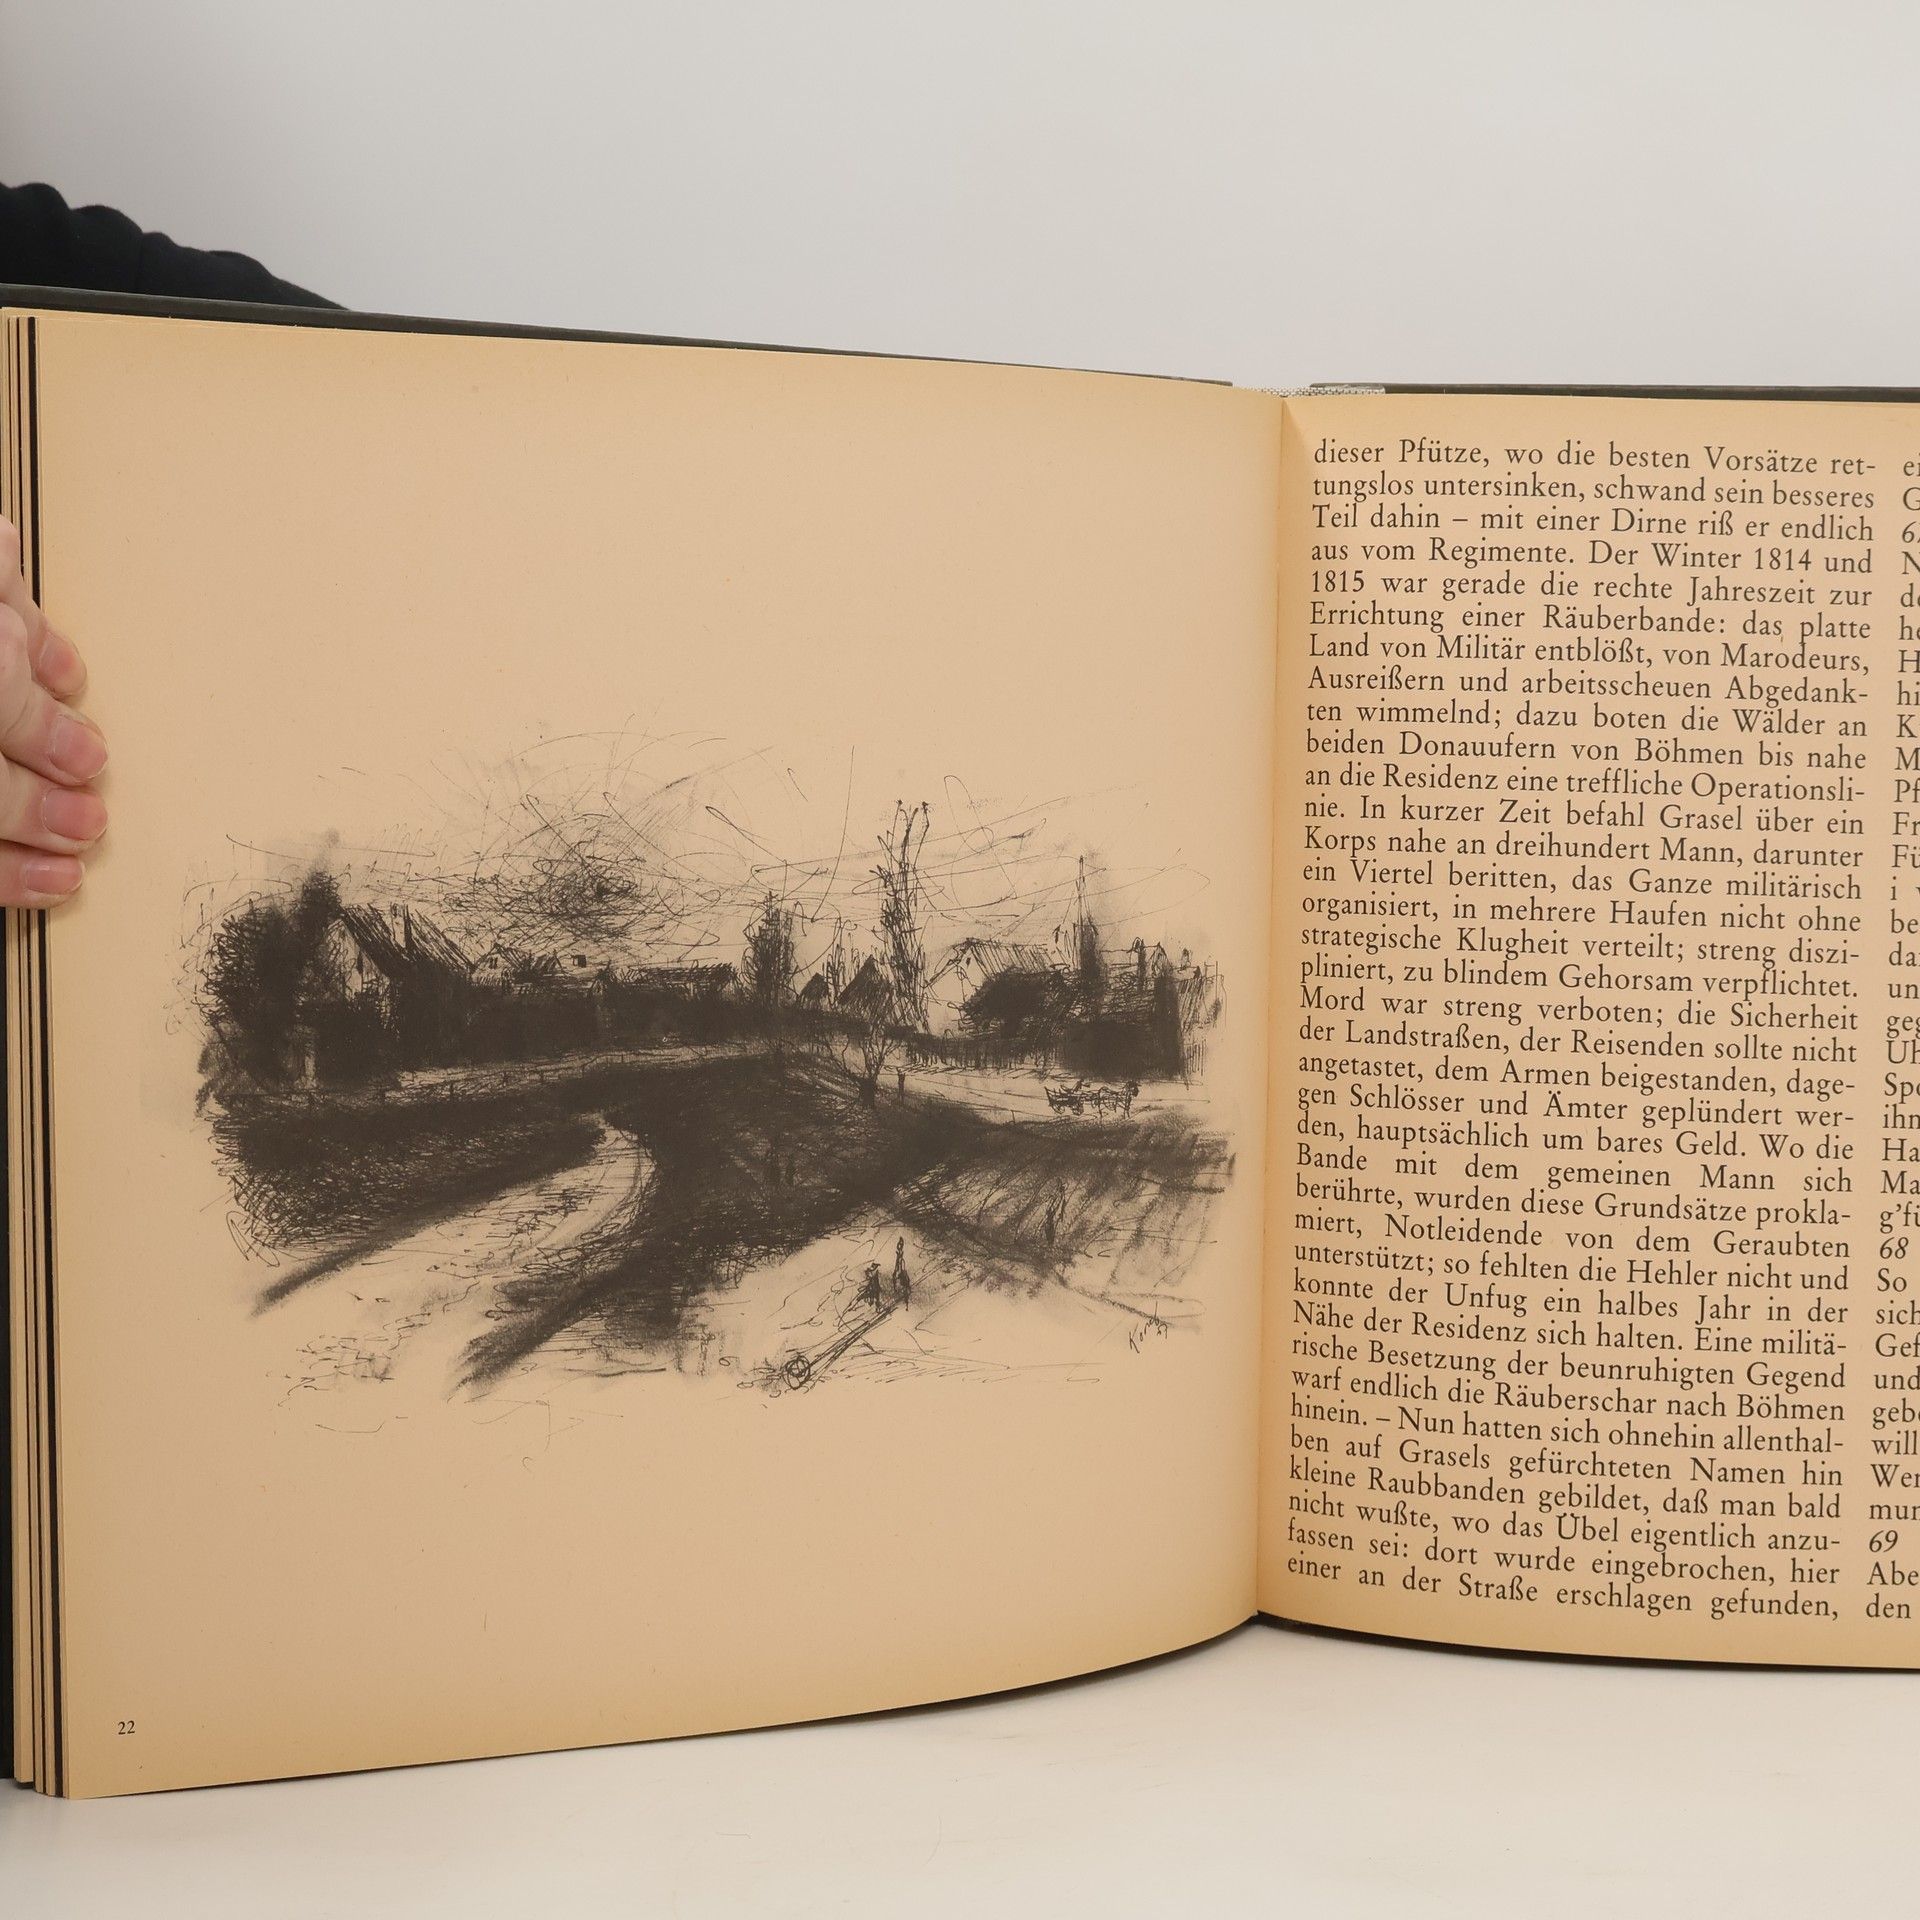 dieser Pfütze, wo die besten Vorsätze ret-
tungslos untersinken, schwand sein besseres
Teil dahin – mit einer Dirne riß er endlich
aus vom Regimente. Der Winter 1814 und
1815 war gerade die rechte Jahreszeit zur
Errichtung einer Räuberbande: das platte
Land von Militär entblößt, von Marodeurs,
Ausreißern und arbeitsscheuen Abgedank-
ten wimmelnd; dazu boten die Wälder an
beiden Donauufern von Böhmen bis nahe
an die Residenz eine treffliche Operationsli-
nie. In kurzer Zeit befahl Grasel über ein
Korps nahe an dreihundert Mann, darunter
ein Viertel beritten, das Ganze militärisch
organisiert, in mehrere Haufen nicht ohne
strategische Klugheit verteilt; streng diszi-
pliniert, zu blindem Gehorsam verpflichtet.
Mord war streng verboten; die Sicherheit
der Landstraßen, der Reisenden sollte nicht
angetastet, dem Armen beigestanden, dage-
gen Schlösser und Ämter geplündert wer-
den, hauptsächlich um bares Geld. Wo die
Bande mit dem gemeinen Mann sich
berührte, wurden diese Grundsätze prokla-
miert, Notleidende von dem Geraubten
unterstützt; so fehlten die Hehler nicht und
konnte der Unfug ein halbes Jahr in der
Nähe der Residenz sich halten. Eine militä-
rische Besetzung der beunruhigten Gegend
warf endlich die Räuberschar nach Böhmen
hinein. – Nun hatten sich ohnehin allenthal-
ben auf Grasels gefürchteten Namen hin
kleine Raubbanden gebildet, daß man bald
nicht wußte, wo das Übel eigentlich anzu-
fassen sei: dort wurde eingebrochen, hier
einer an der Straße erschlagen gefunden,
68
So
69
den
22